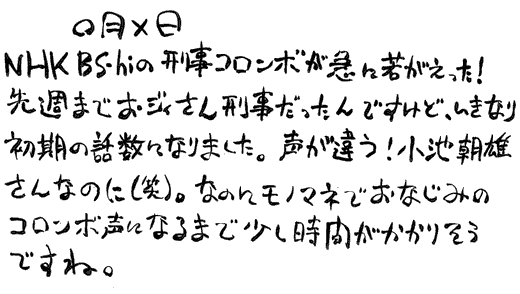 〇月×日
NHK BS-hiの刑事コロンボが急に若がえった!
先週までおジィさん刑事だったんですけど、いきなり
初期の話数になりました。声が違う!小池朝雄
さんなのに(笑)。なのにモノマネでおなじみの
コロンボ声になるまで少し時間がかかりそう
ですね。